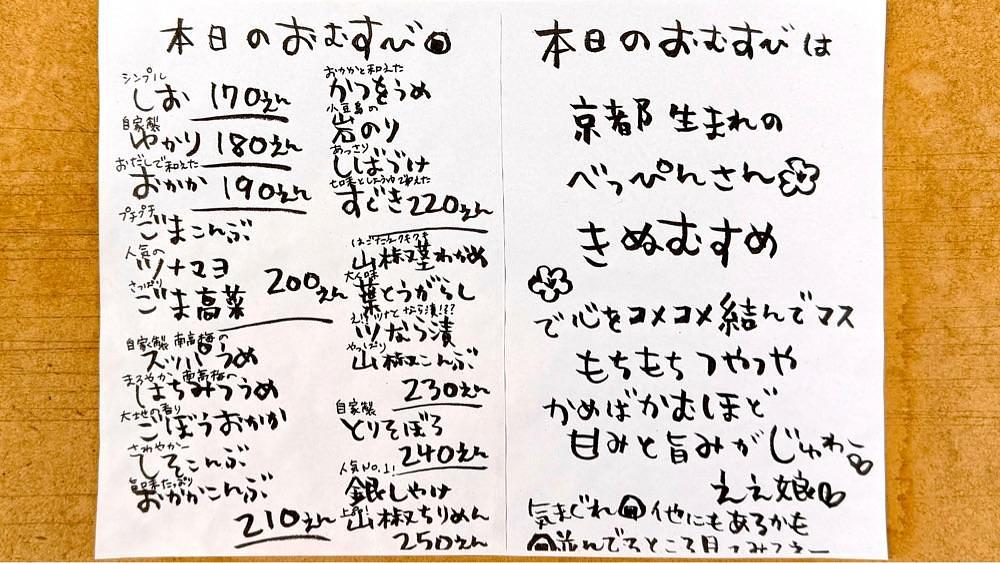 本日のおむすび
シンプル
しお 170えん
自家製
ゆかり 180えん
おだしで和えた
おかか 190えん
プチプチ
ごまこんぶ
人気の
ツナマヨ
さっぱり
ごま高菜
200えん
自家製 南高梅の
スッパうめ
まろやか 南高梅の
はちみつうめ
大地の香り
ごぼうおかか
さわやかー
しそこんぶ
旨味たっぷり
おかかこんぶ
210えん
おかかと和えた
かつをうめ
小豆島の
岩のり
あっさり
しばづけ
七味としょうゆで和えた
すぐき 220えん
はごたえクキクキ
山椒茎わかめ
大人味
葉とうがらし
え!?ツナとなら漬!??
ツなら漬
やっぱり
山椒こんぶ
230えん
自家製
とりそぼろ
240えん
人気NO.1!
銀しゃけ
上品!
山椒ちりめん
250えん
本日のおむすびは
京都生まれの
べっぴんさん
きぬむすめ
で心をコメコメ結んでマス
もちもちつやつや
かめばかむほど
甘みと旨みがじゅわ〜
ええ娘
気まぐれ 他にもあるかも
並んでるところ見てみてネー